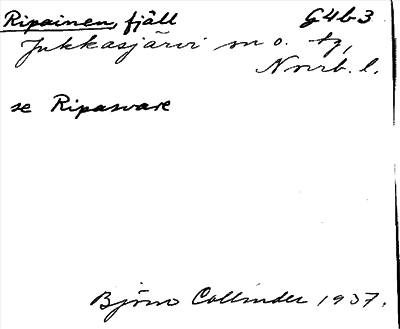 Ripainen, fjäll G4b3
Jukkasjärvi sn o. tg,
Norrb. l.
se Ripasvare
Björn Collinder 1937.